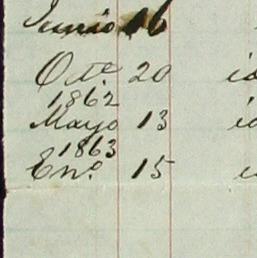 Junio 16
Oct.e 20 id
1862
Mayo 13 id
1863
En.o 15